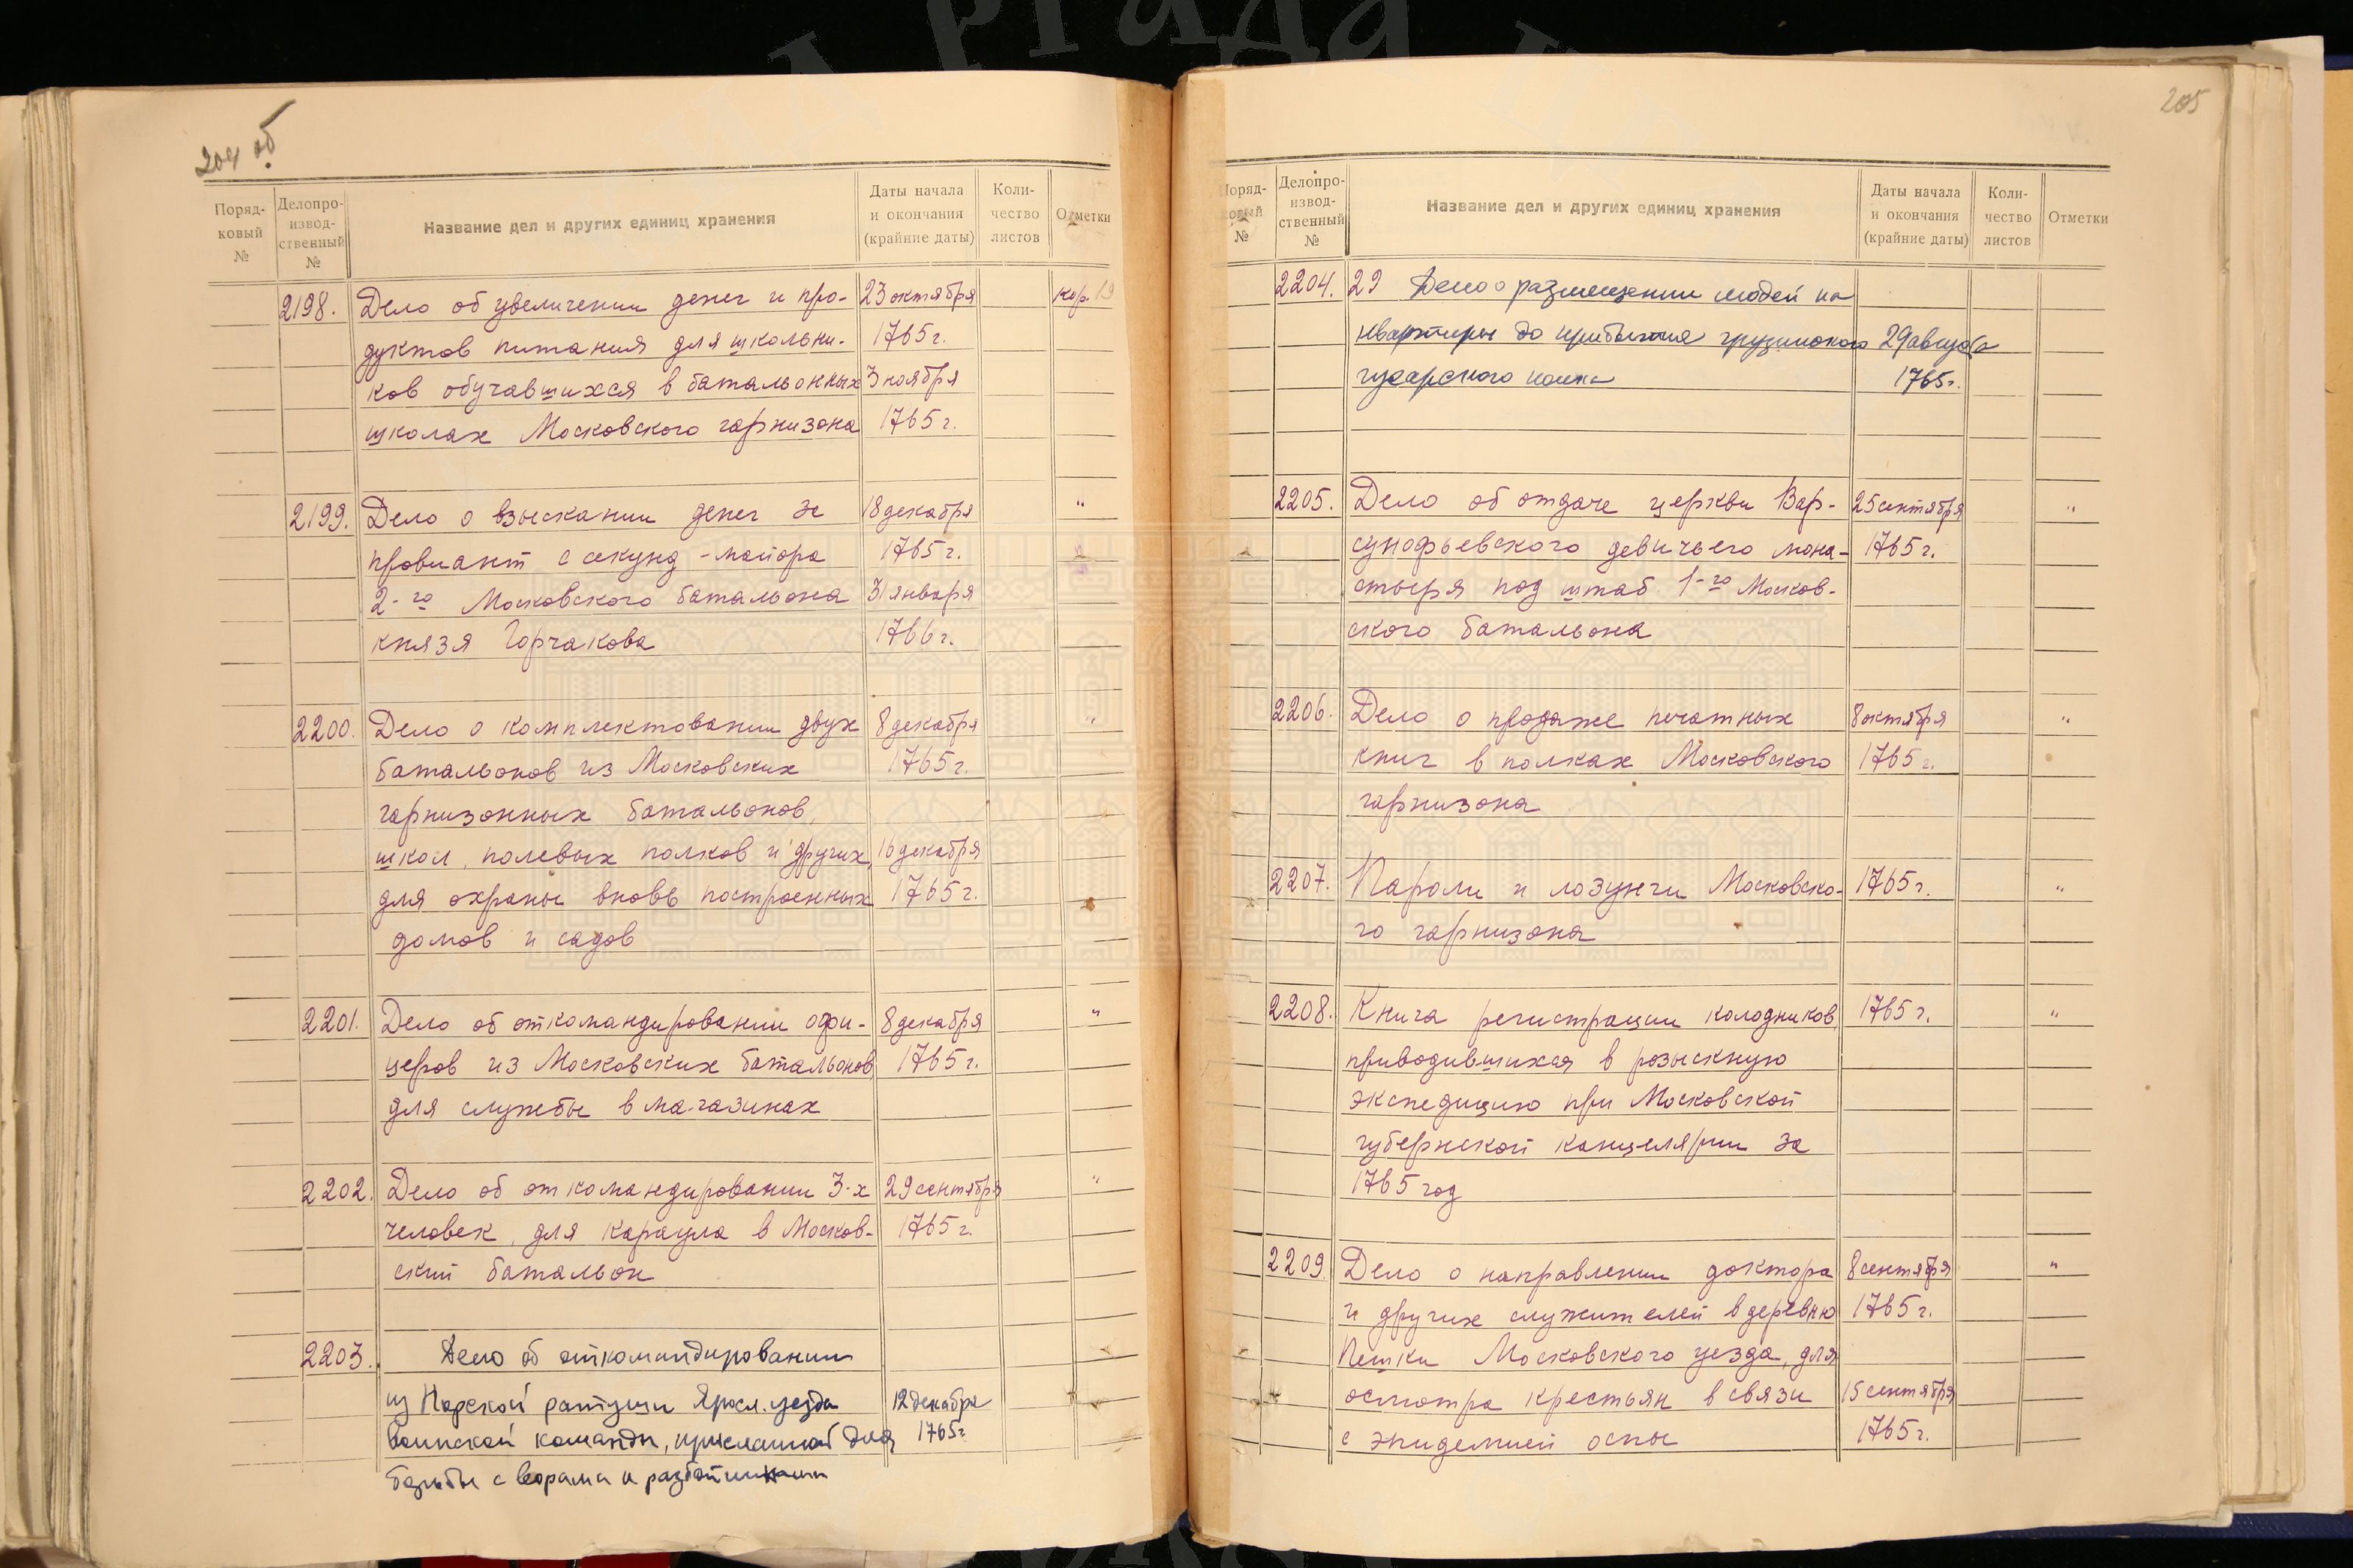 204 об
Поряд-
ковый
№
Делопро-
извод-
ственный
№
Название дел и других единиц хранения
Даты начала
и окончания
(крайние даты)
Коли-
чество
листов
Отметки
2198. Дело об увеличении денег и про- 23 октября кор. 19
дуктов питания для школьни- 1765 г.
ков обучавшихся в батальонных 3 ноября
школах Московского гарнизона 1765 г.
2199. Дело о взыскании денег за 18 декабря "
провиант с секунд-майора 1765 г.
2-го Московского батальона 31 января
князя Горчакова 1766 г.
2200. Дело о комплектовании двух 8 декабря "
батальонов из Московских 1765 г.
гарнизонных батальонов,
школ, полевых полков и других, 16 декабря
для охраны вновь построенных 1765 г.
домов и садов
2201. Дело об откомандировании офи- 8 декабря "
церов из Московских батальонов 1765 г.
для службы в магазинах
2202. Дело об откомандировании 3-х 29 сентября "
человек, для караула в Москов- 1765 г.
ский батальон
2203. Дело об откомандировании
из Норской ратуши Яросл. уезда 12 декабря
воинской команды, присланной для 1765 г.
борьбы с ворами и разбойниками
205
Поряд-
ковый
№
Делопро-
извод-
ственный
№
Название дел и других единиц хранения
Даты начала
и окончания
(крайние даты)
Коли-
чество
листов
Отметки
2204. 29 Дело о размещении людей на
квартиры до прибытия грузинского 29 августа
гусарского полка 1765 г.
2205. Дело об отдаче церкви Вар- 25 сентября "
сунофьевского девичьего мона- 1765 г.
стыря под штаб 1-го Москов-
ского батальона
2206. Дело о продаже печатных 8 октября "
книг в полках Московского 1765 г.
гарнизона
2207. Пароли и лозунги Московско- 1765 г. "
го гарнизона
2208. Книга регистрации колодников, 1765 г. "
приводившихся в розыскную
экспедицию при Московской
губернской канцелярии за
1765 год
2209. Дело о направлении доктора 8 сентября "
и других служителей в деревню 1765 г.
Пешки Московского уезда, для
осмотра крестьян в связи 15 сентября
с эпидемией оспы 1765 г.